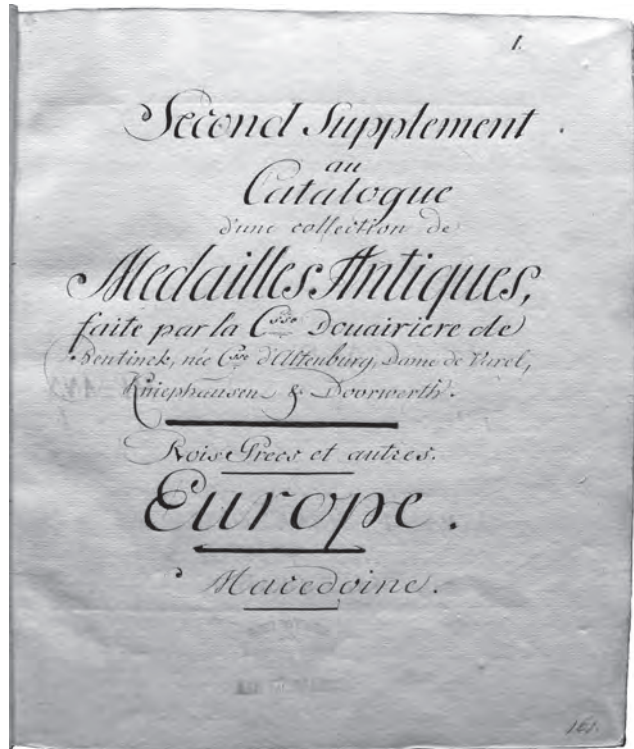 1.
Second Supplement.
au
Catalogue
d'une collection de
Medailles Antiques,
faite par la C.sse Douairiere de
Bentinck, née C.sse d'Altenburg, Dame de Varel,
Kniephausen & Doorwerth.
Rois Grecs et autres.
Europe.
Macedoine.
161.